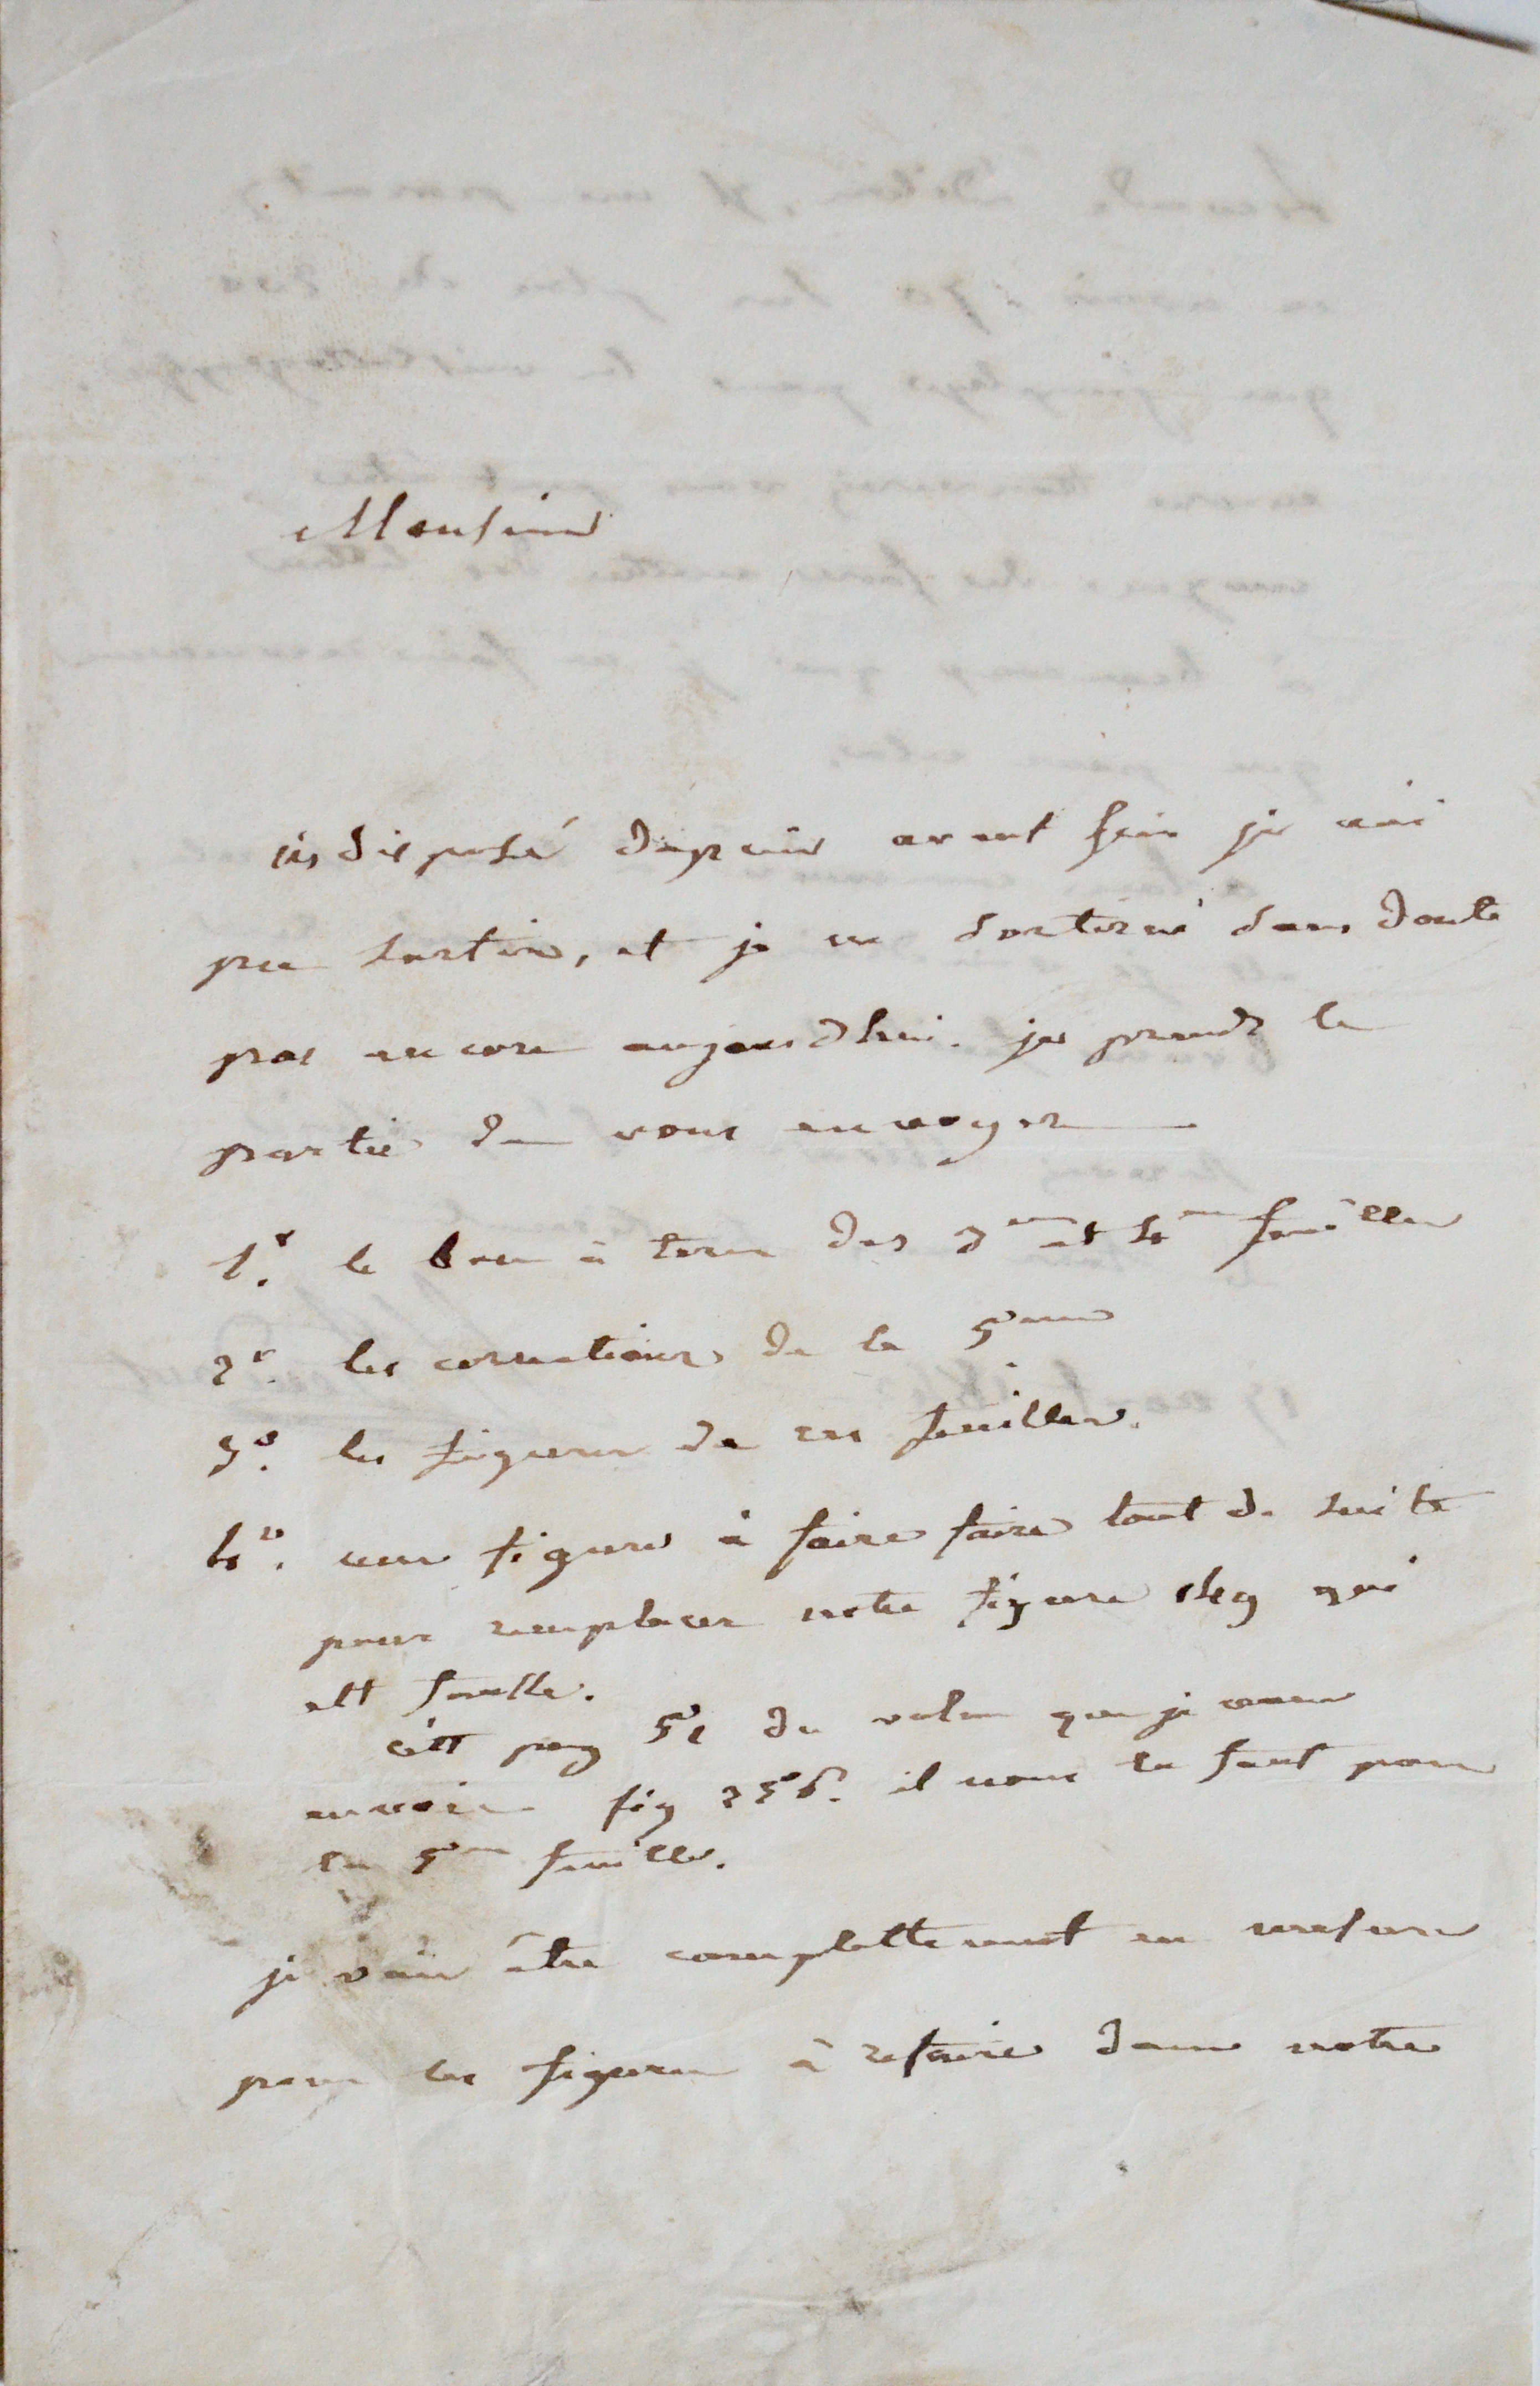 Monsieur
indisposé depuis avant hier je n'ai
pu sortir, et je ne sortirai sans doute
pas encore aujourdhui. je prends le
partie de vous envoyer
1º. le bon à tirer des 3me et 4me feuilles
2º. les corrections de la 5me
3º. les figures de ces feuilles.
4º. une figure à faire faire tout de suite
pour remplacer notre figure qui
est fausse.
c'est pag 51 du volume que je vous
envoie fig 256. il nous la faut pour
la 5me feuille.
je vais être complettement en mesure
pour les figures à refaire dans notre